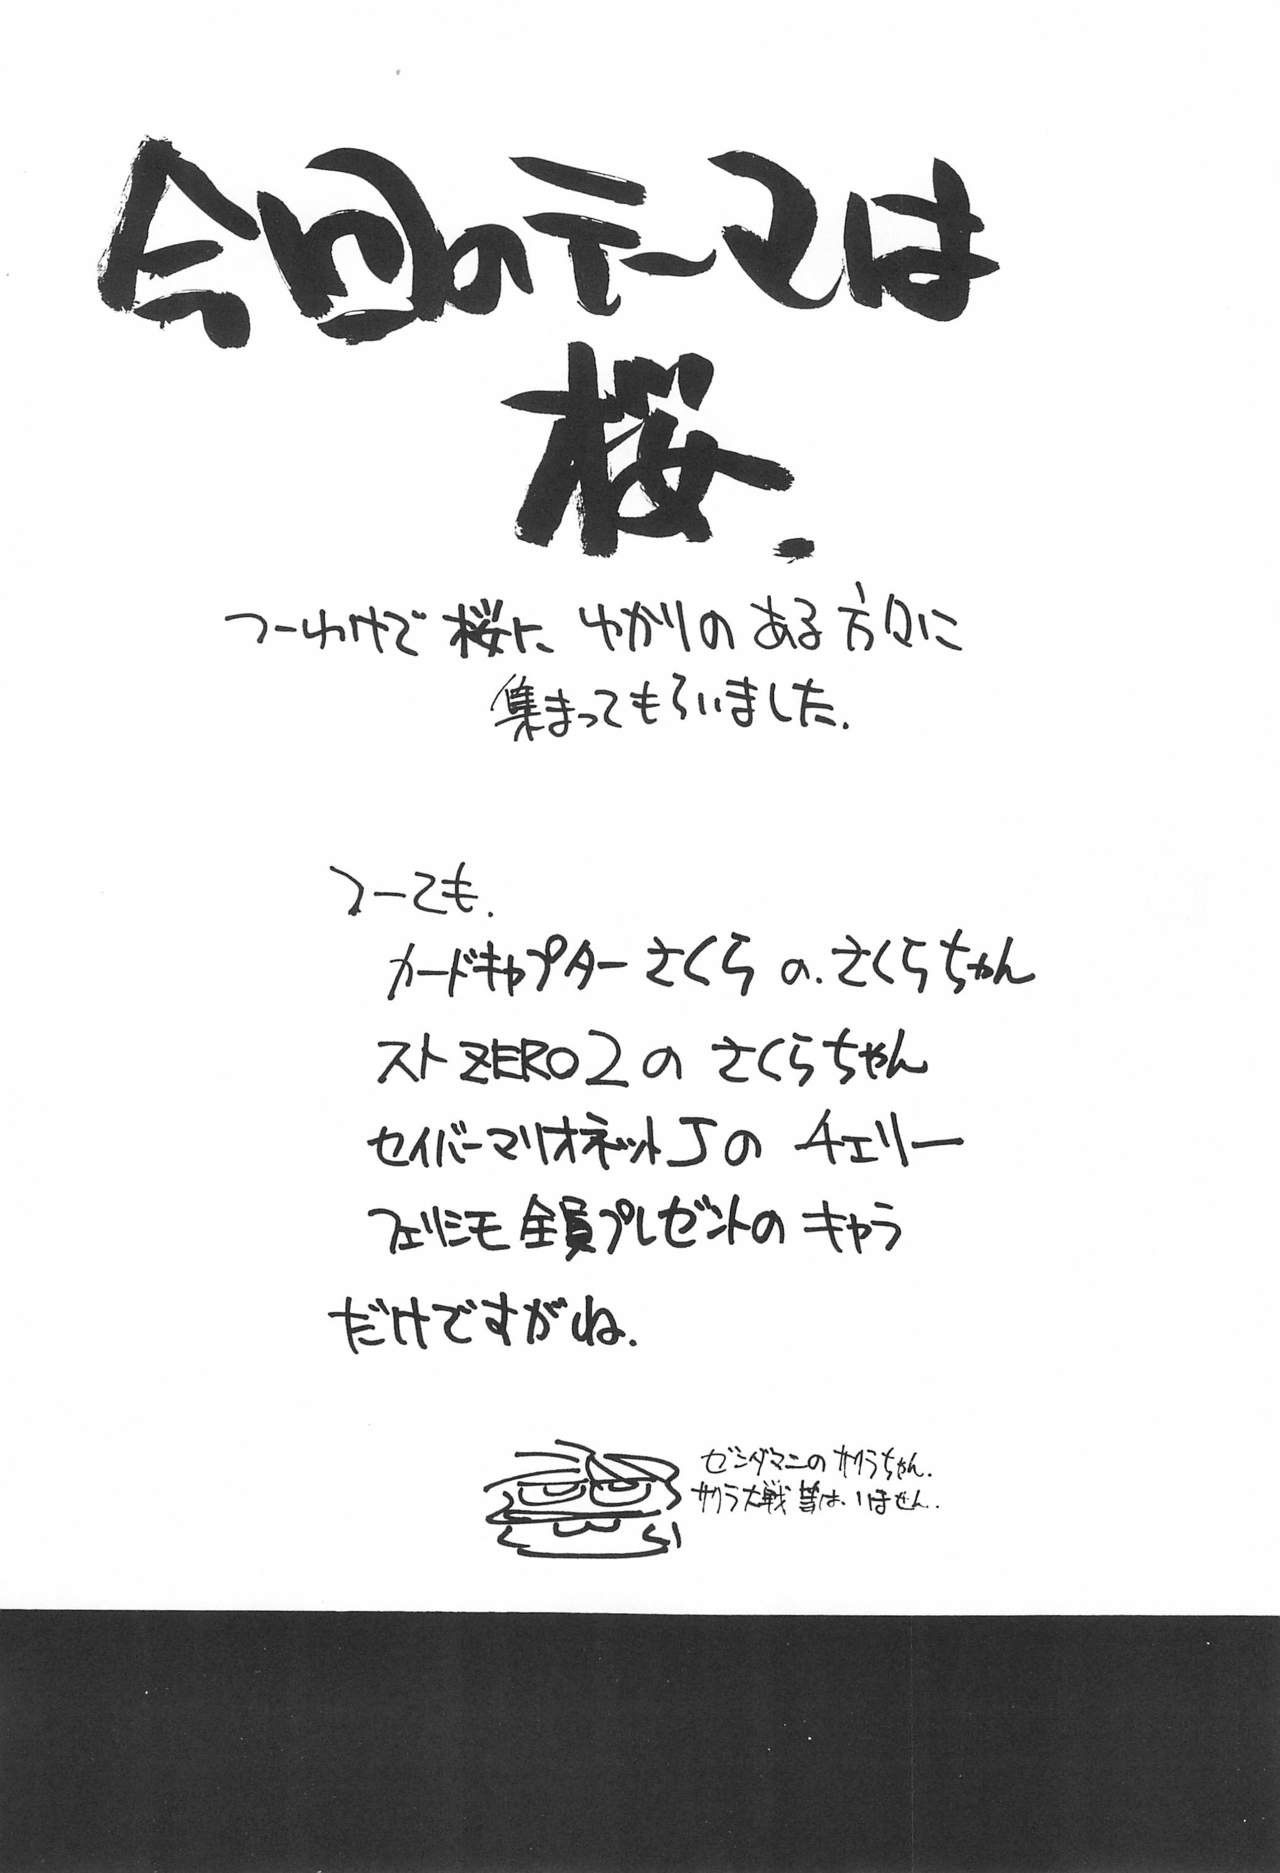 今回のテーマは
桜.
つーわけで桜に ゆかりの ある 方々に
集まってもらいました.
つーても.
カードキャプターさくらの.さくらちゃん
ストZERO2の さくらちゃん
セイバーマリオネットJの チェリー
フェリシモ全員プレゼントの キャラ
だけですがね.
ゼンダマンの サクラちゃん.
サクラ大戦 等は.いません.